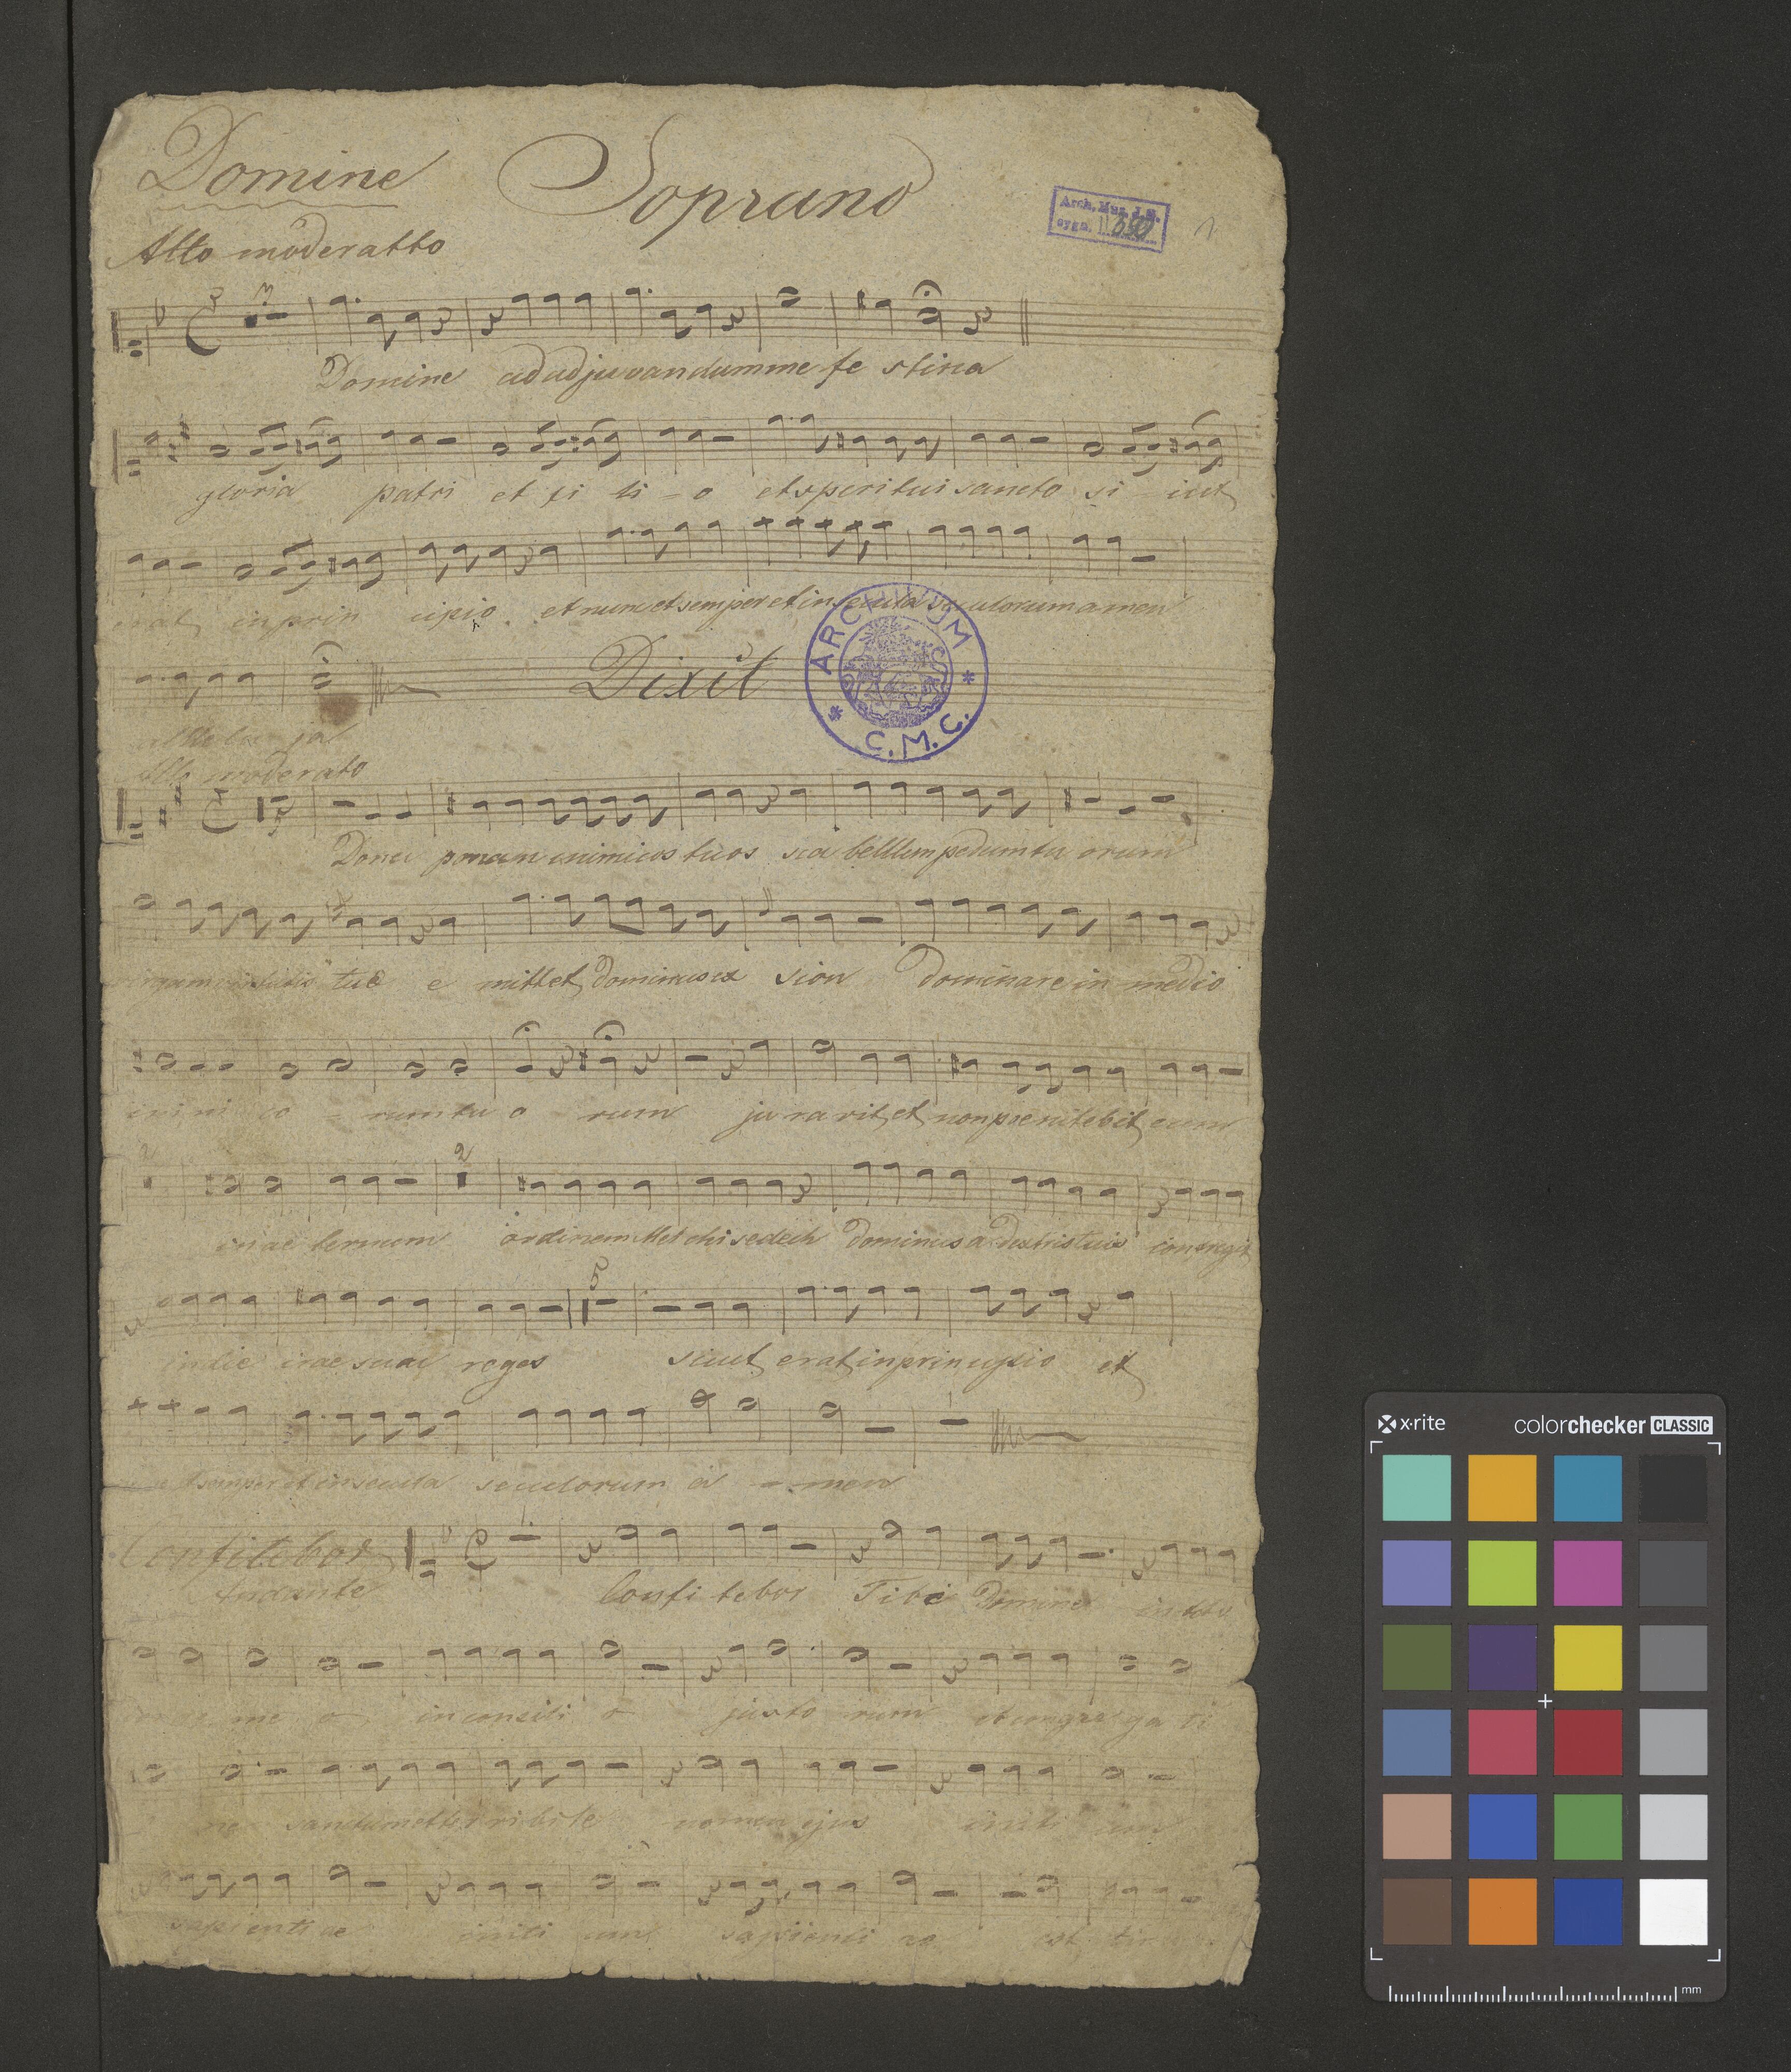 Domine Soprano
Arch. Muz. J. G.
sygn.
Allo moderatto
Domine ad adjuvandum me fe stina
gloria patri et fi li - o et speritui sancto si - cut
erat in prin cipio et nunc et semper et in secula seculorum amen
Dixit
ARCHIVUM
* C. M. C. *
allelu ja
Allo moderato
Donec ponam inimicos tuos sca bellum pedum tu orum
virgam virtutis tue e mittet dominus ex sion dominare in medio
ini mi co - rum tu o rum ju ravit et non poenitebit eum
2 2
in ae ternum ordinem Melchisedech Dominus a dextris tuis confregit
5
in die irae suae reges sicut erat in principio et
et semper et in secula seculorum a - - men
Confitebor
Andante Confi tebor Tibi Domine in toto
me o in consili o justo rum et congre ga ti
ne sanctum et terribile nomen ejus initi um
sapientiae initi um sapienti ae
x·rite colorchecker CLASSIC
mm